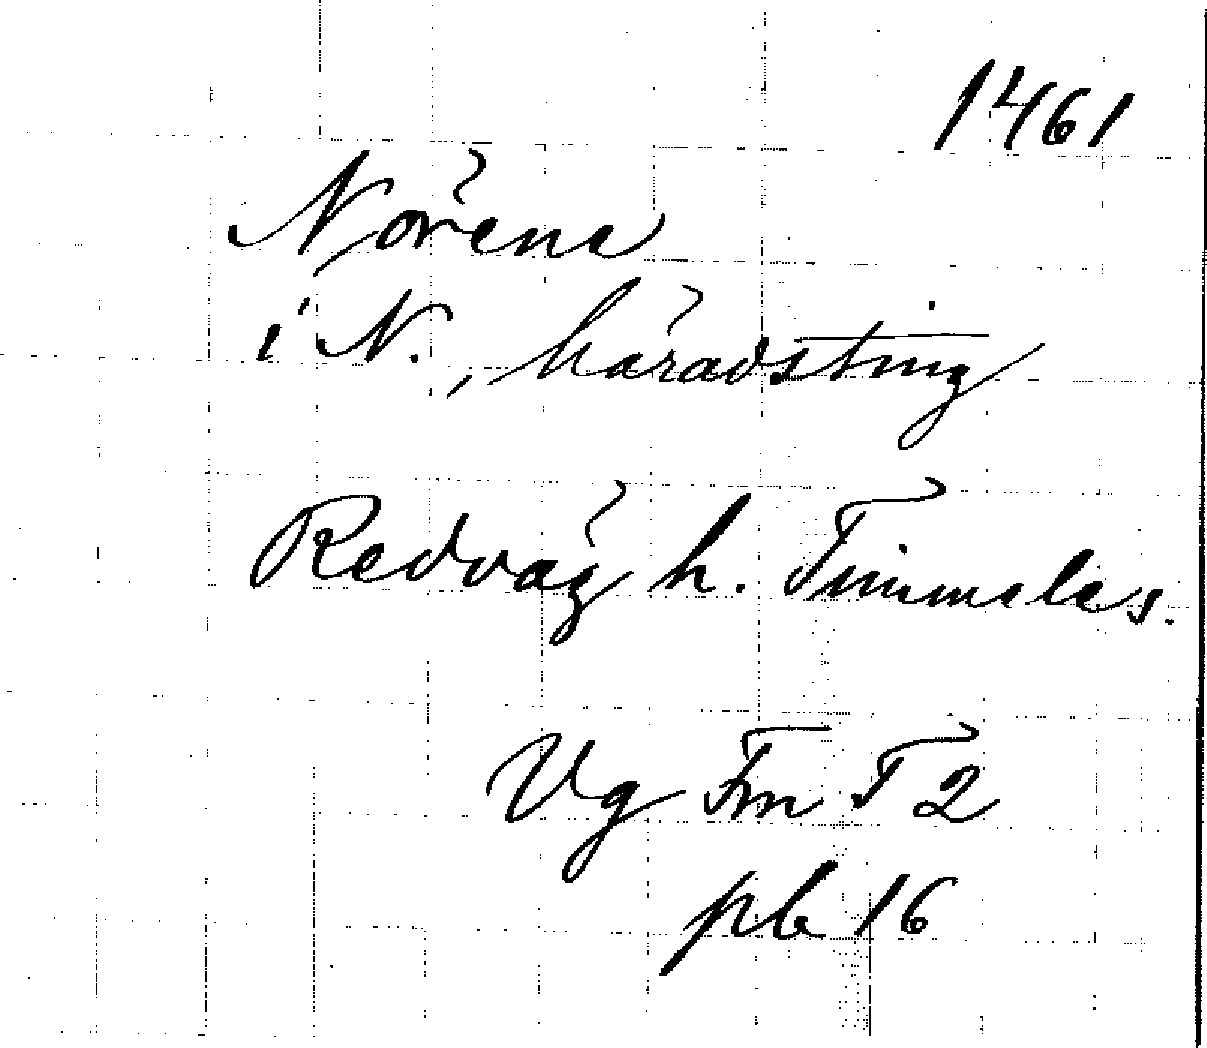 1461
Nörene
i N., häradsting
Redväg h. Timmele s.
Vg Fm T 2
pb 16